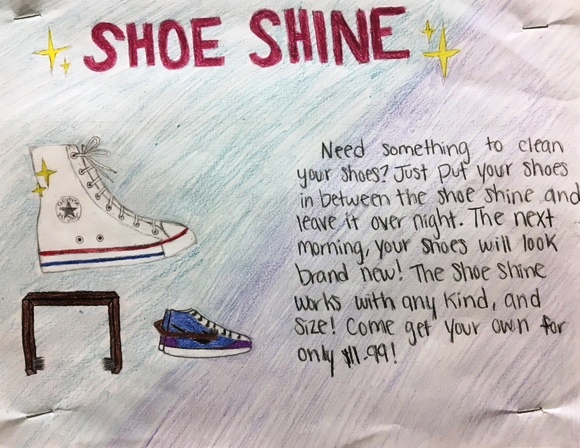 SHOE SHINE
Need something to clean
your shoes? Just put your shoes
in between the shoe shine and
leave it over night. The next
morning, your shoes will look
brand new! The shoe shine
works with any kind, and
size! Come get your own for
only $11.99!